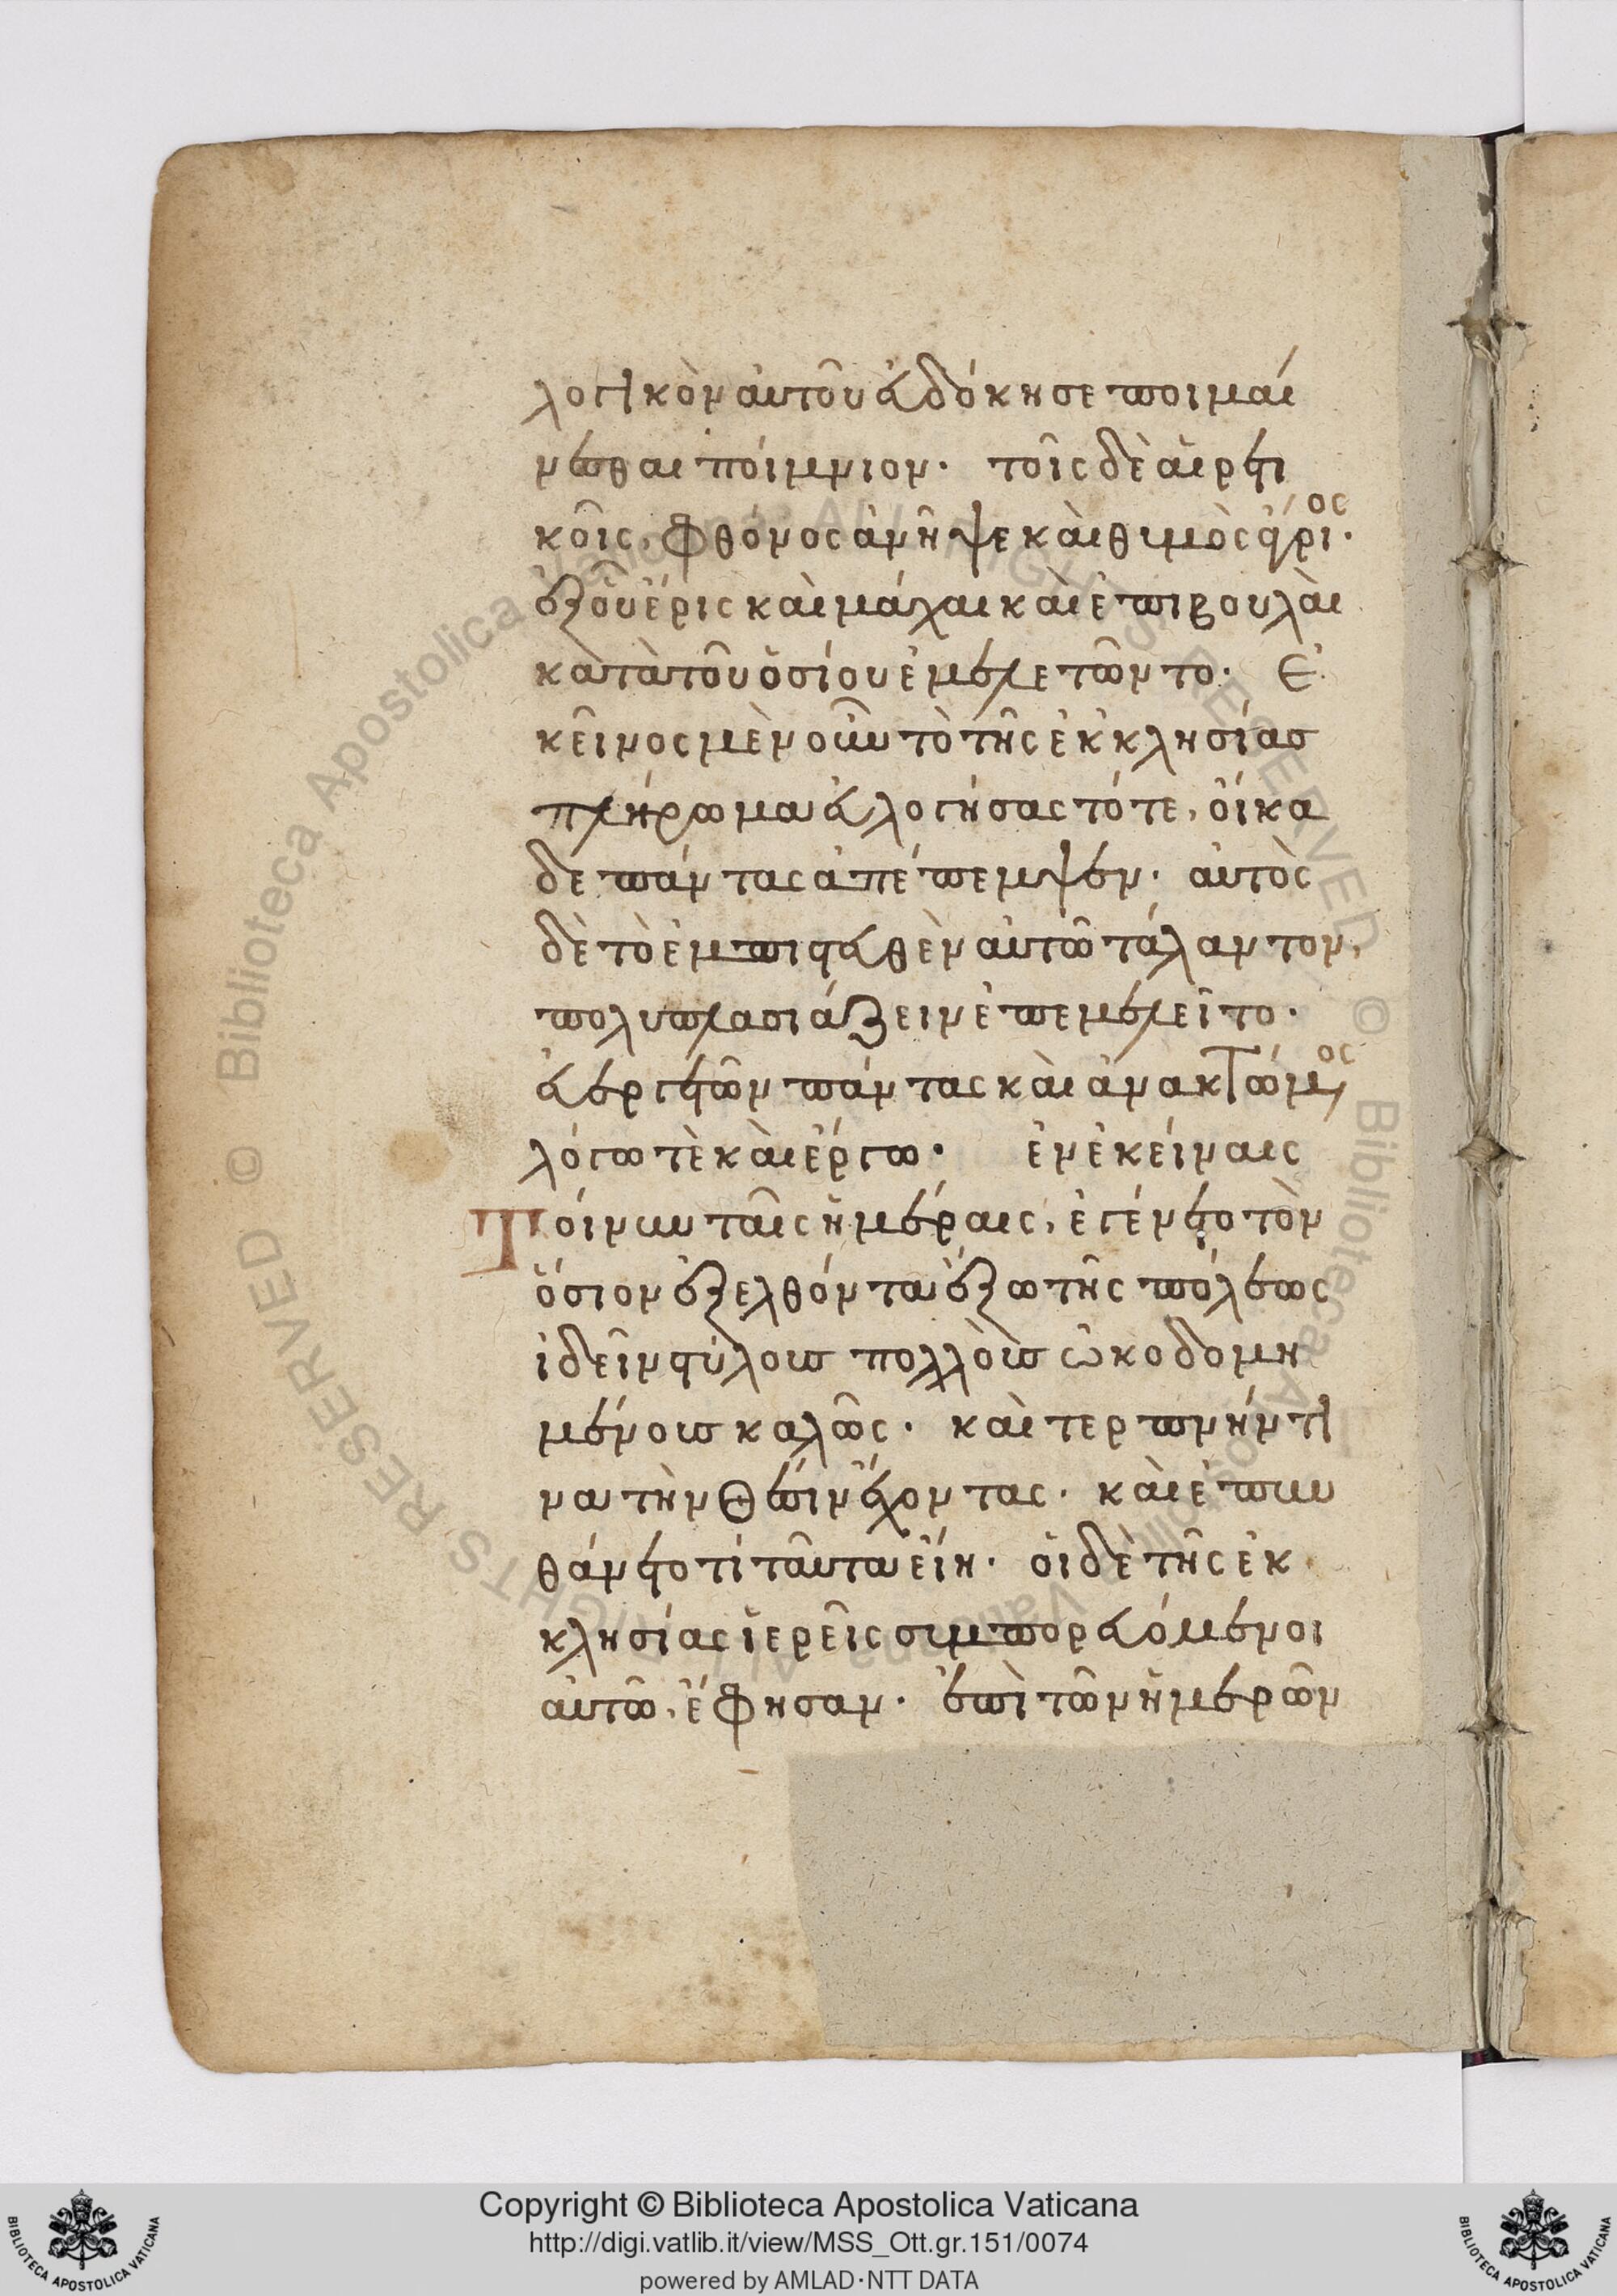 λογικὸν αὐτοῦ εὐδόκησε ποιμαί
νεσθαι ποίμνιον· τοῖς δὲ αἱρετι
κοῖς, φθόνος ἀνῆψε καὶ θυμὸς ἄγριος·
ἐξ οὗ ἔρις καὶ μάχαι καὶ ἐπιβουλαὶ
κατὰ τοῦ ὁσίου ἐμελετῶντο· Ἐ
κεῖνος μὲν οὖν τὸ τῆς ἐκκλησίας
πλήρωμα εὐλογήσας τότε, οἴκα
δε πάντας ἀπέπεμψεν· αὐτὸς
δὲ τὸ ἐμπιστευθὲν αὐτῶ τάλαντον,
πολυπλασιάζειν ἐπεμελεῖτο·
εὐεργετῶν πάντας καὶ ἀνακτώμενος
λόγω τὲ καὶ ἔργω· ἐν ἐκείναις
Τοίνυν ταῖς ἡμέραις, ἐγένετο τὸν
ὅσιον ἐξελθόντα ἔξω τῆς πόλεως
ἰδεῖν στύλους πολλοὺς ὠκοδομη
μένους καλῶς· καὶ τερπνήν τι
να τὴν θέσιν ἔχοντας· καὶ ἐπυν
θάνετο τί ταῦτα εἴη· οἱ δὲ τῆς ἐκ
κλησίας ἱερεῖς συμπορευόμενοι
αὐτῶ, ἔφησαν· ἐπὶ τῶν ἡμερῶν
Copyright © Biblioteca Apostolica Vaticana
http://digi.vatlib.it/view/MSS_Ott.gr.151/0074
powered by AMLAD·NTT DATA
BIBLIOTECA APOSTOLICA VATICANA
BIBLIOTECA APOSTOLICA VATICANA